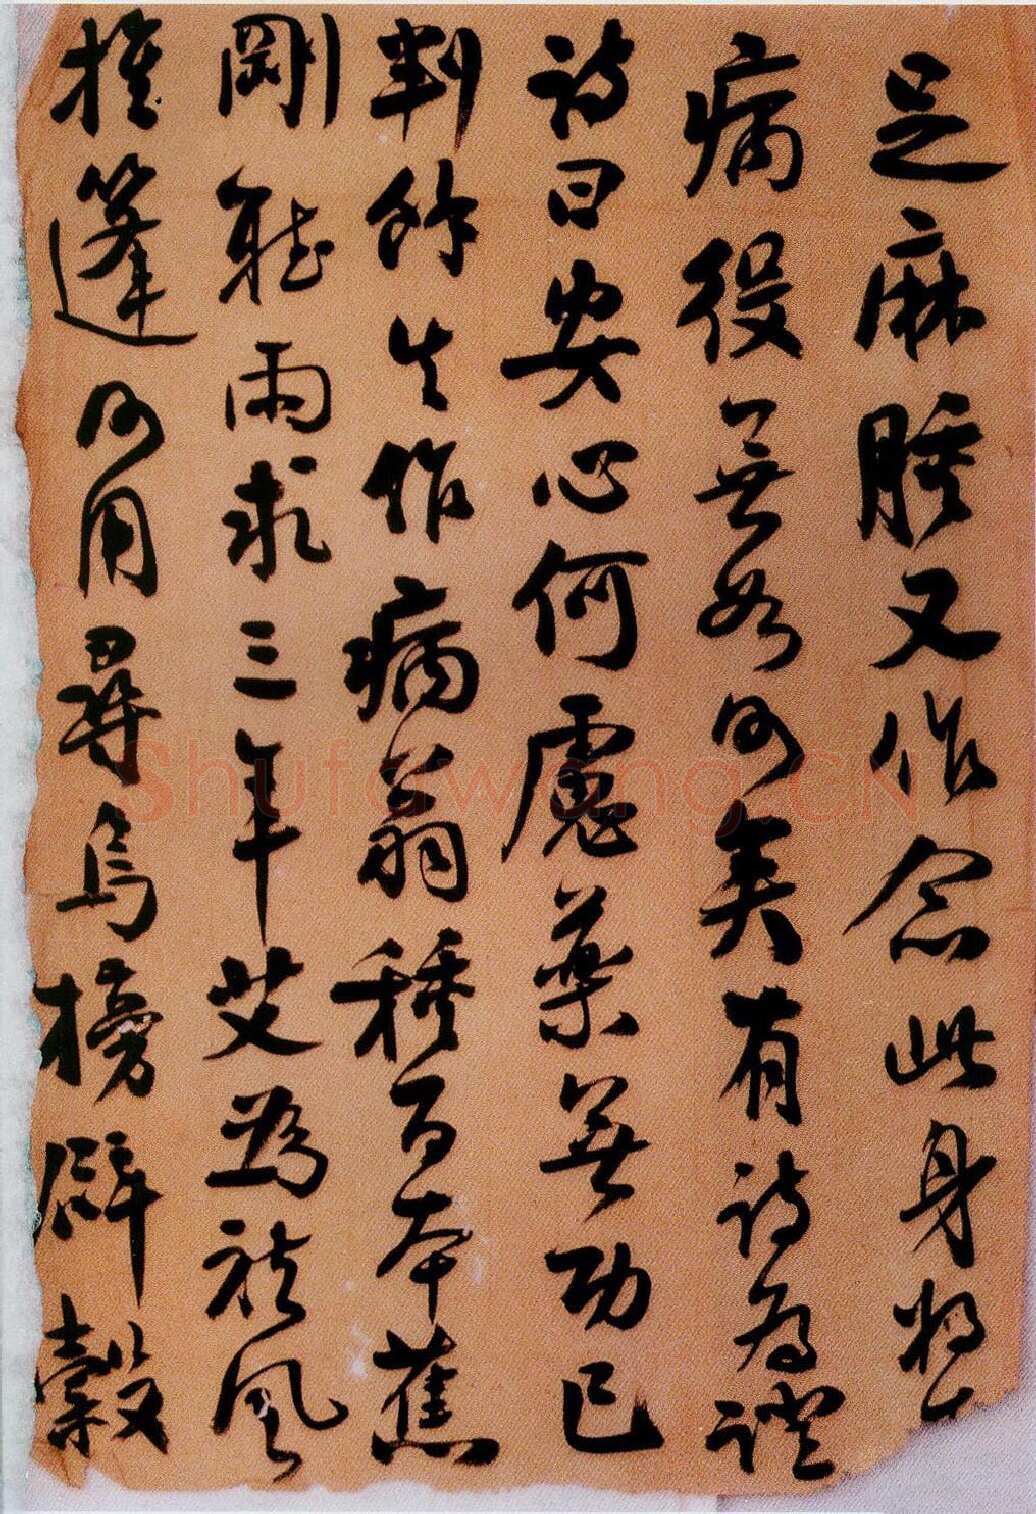 足麻腫又作念此身將
病役無如何矣有詩為證
詩曰安心何處藥無功已
判餘生作病翁種百本蕉
剛聽雨求三年艾為祛風
推篷何用尋烏榜辟穀
Shufawang.CN